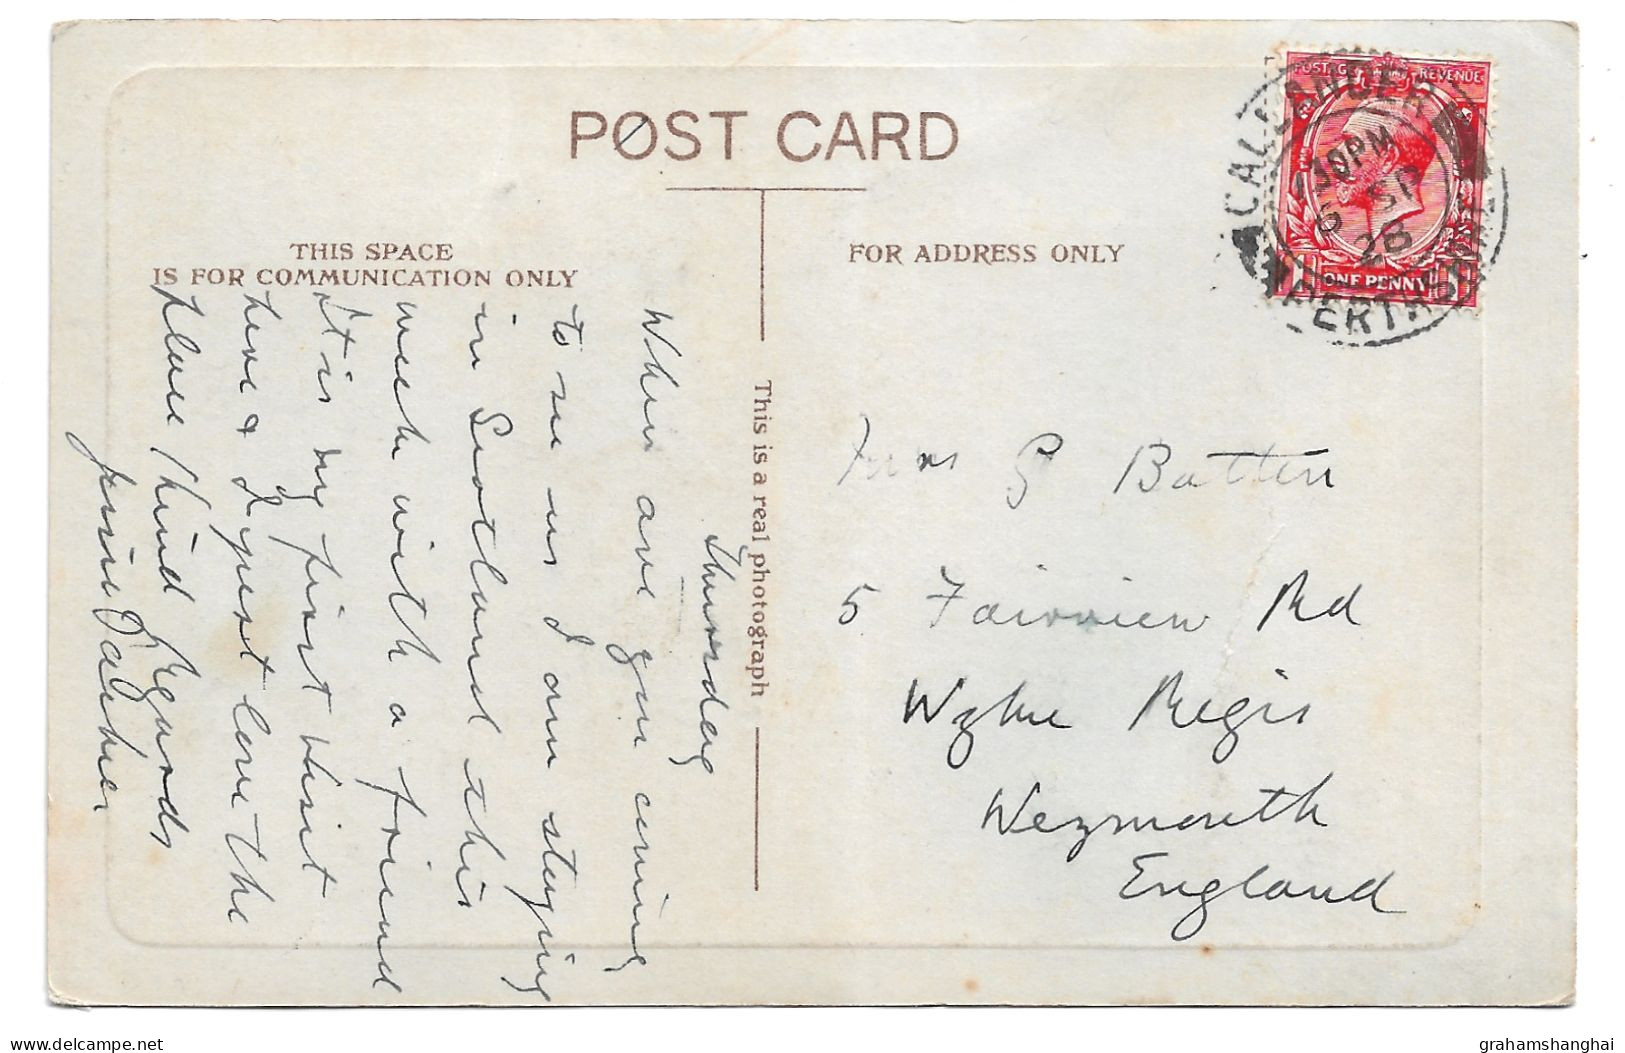 POST CARD
THIS SPACE
IS FOR COMMUNICATION ONLY
FOR ADDRESS ONLY
POSTAGE REVENUE
ONE PENNY
CALLANDER
30PM
6 SP
28
PERTHSHIRE
This is a real photograph
Thursday
When are you coming
to see us I am staying
in Scotland this
week with a friend
it is my first visit
here & I just love the
place Kind Regards
Jessie
Mrs G Batten
5 Fairview Rd
Wyke Regis
Weymouth
England
delcampe.net
grahamshanghai